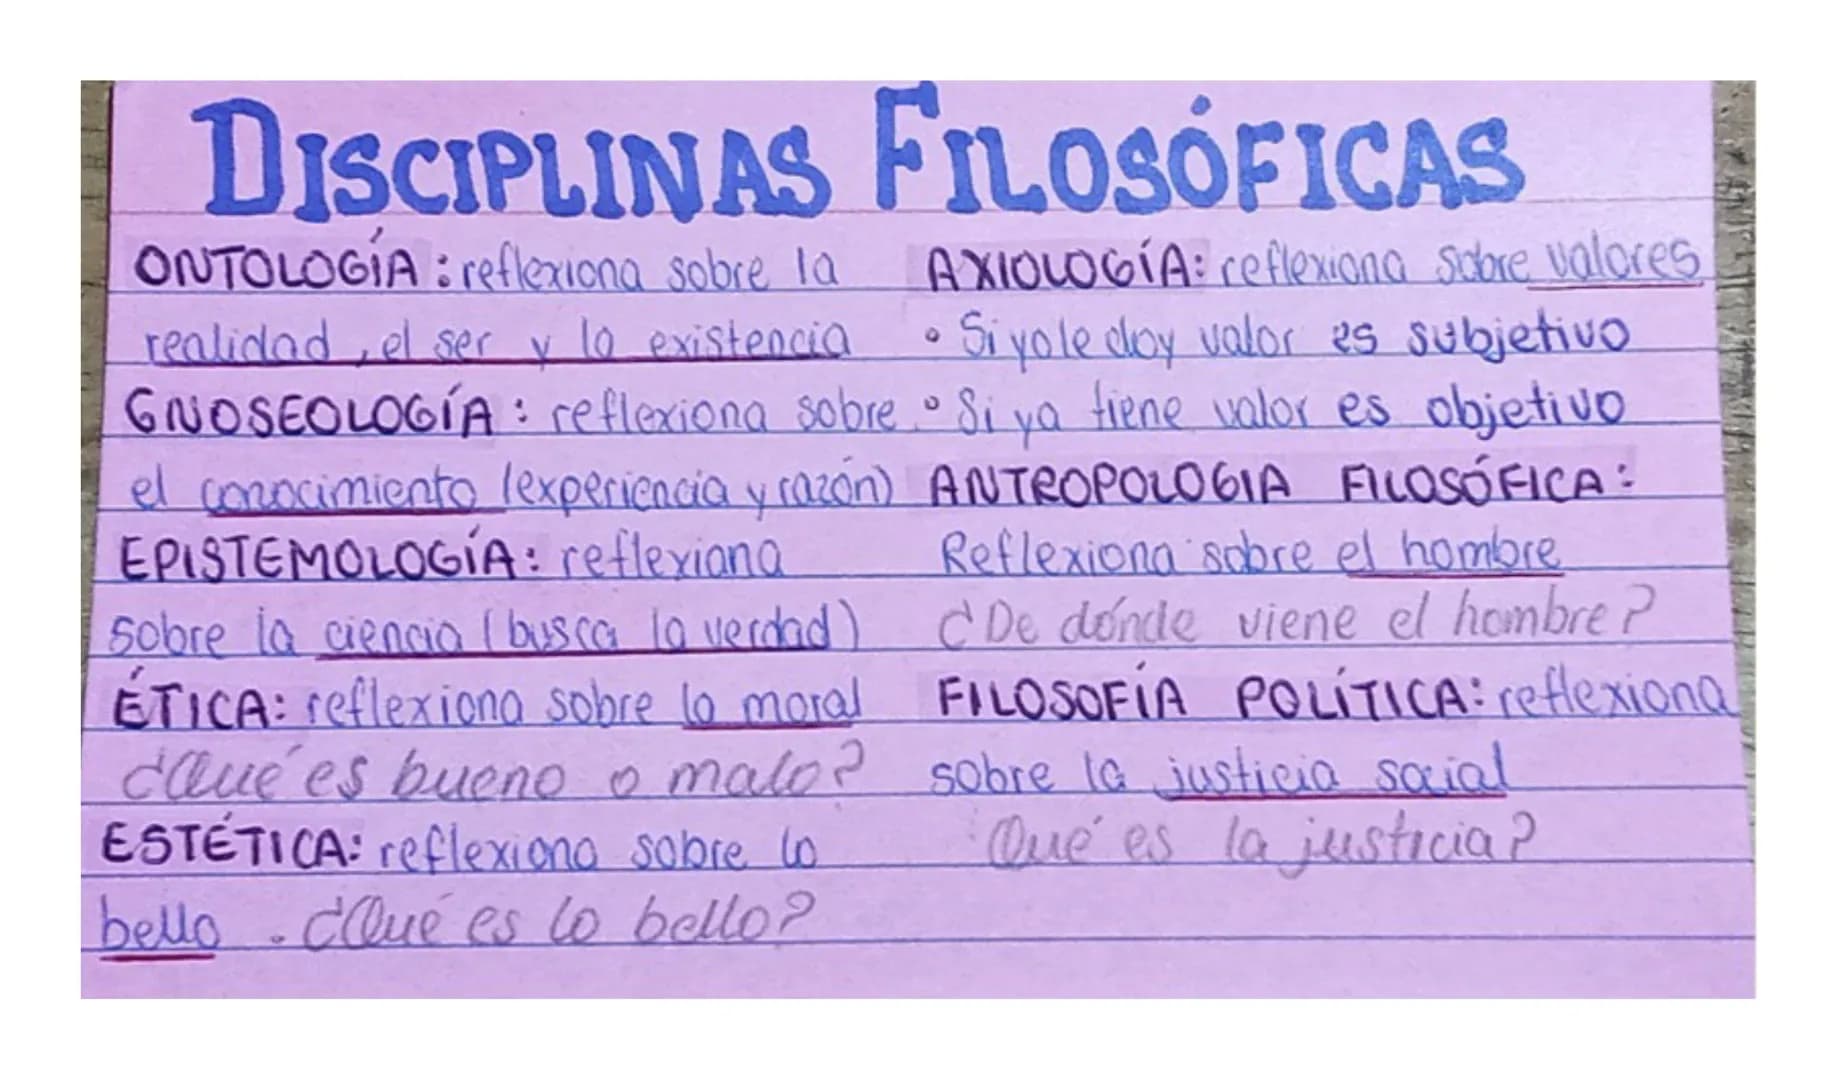 DISCIPLINAS FILOSÓFICAS
ONTOLOGÍA: reflexiona sobre la
realidad, el ser y la existencia
GNOSEOLOGÍA: reflexiona sobre
el conocimiento (experiencia y razón)
EPISTEMOLOGÍA: reflexiona
sobre la ciencia (busca la verdad)
ÉTICA: reflexiona sobre la moral
¿Qué es bueno o malo?
ESTÉTICA: reflexiona sobre lo
bello. ¿Qué es lo bello?
AXIOLOGÍA: reflexiona sobre valores
• Si yo le doy valor es subjetivo
• Si ya tiene valor es objetivo
ANTROPOLOGIA FILOSÓFICA:
Reflexiona sobre el hombre
¿De dónde viene el hombre?
FILOSOFÍA POLÍTICA: reflexiona
sobre la justicia social
¿Qué es la justicia?